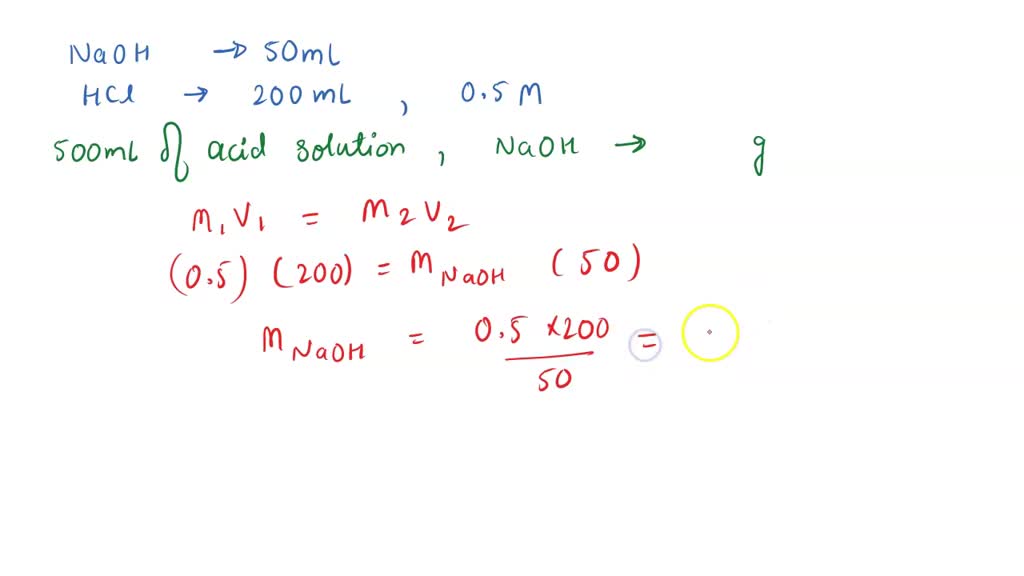 NaOH → 50mL
HCl → 200 mL , 0.5 M
500mL of acid solution , NaOH → g
M₁V₁ = M₂V₂
(0.5) (200) = M NaOH (50)
M NaOH = 0.5 × 200 =
50